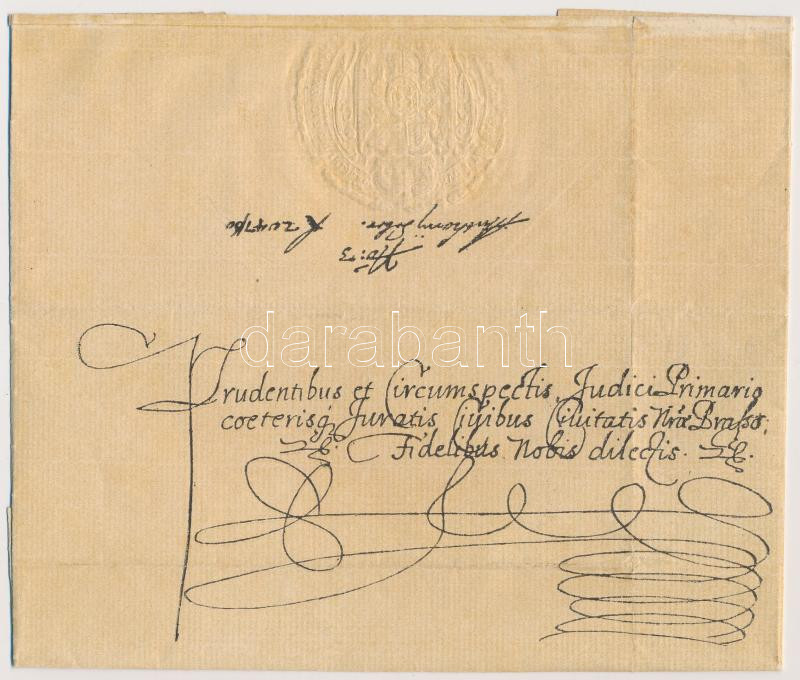 darabanth
Prudentibus et Circumspectis, Judici Primario
coeterisq; Juratis Ciuibus Ciuitatis Nrae Brasso,
Fidelibus Nobis dilectis.